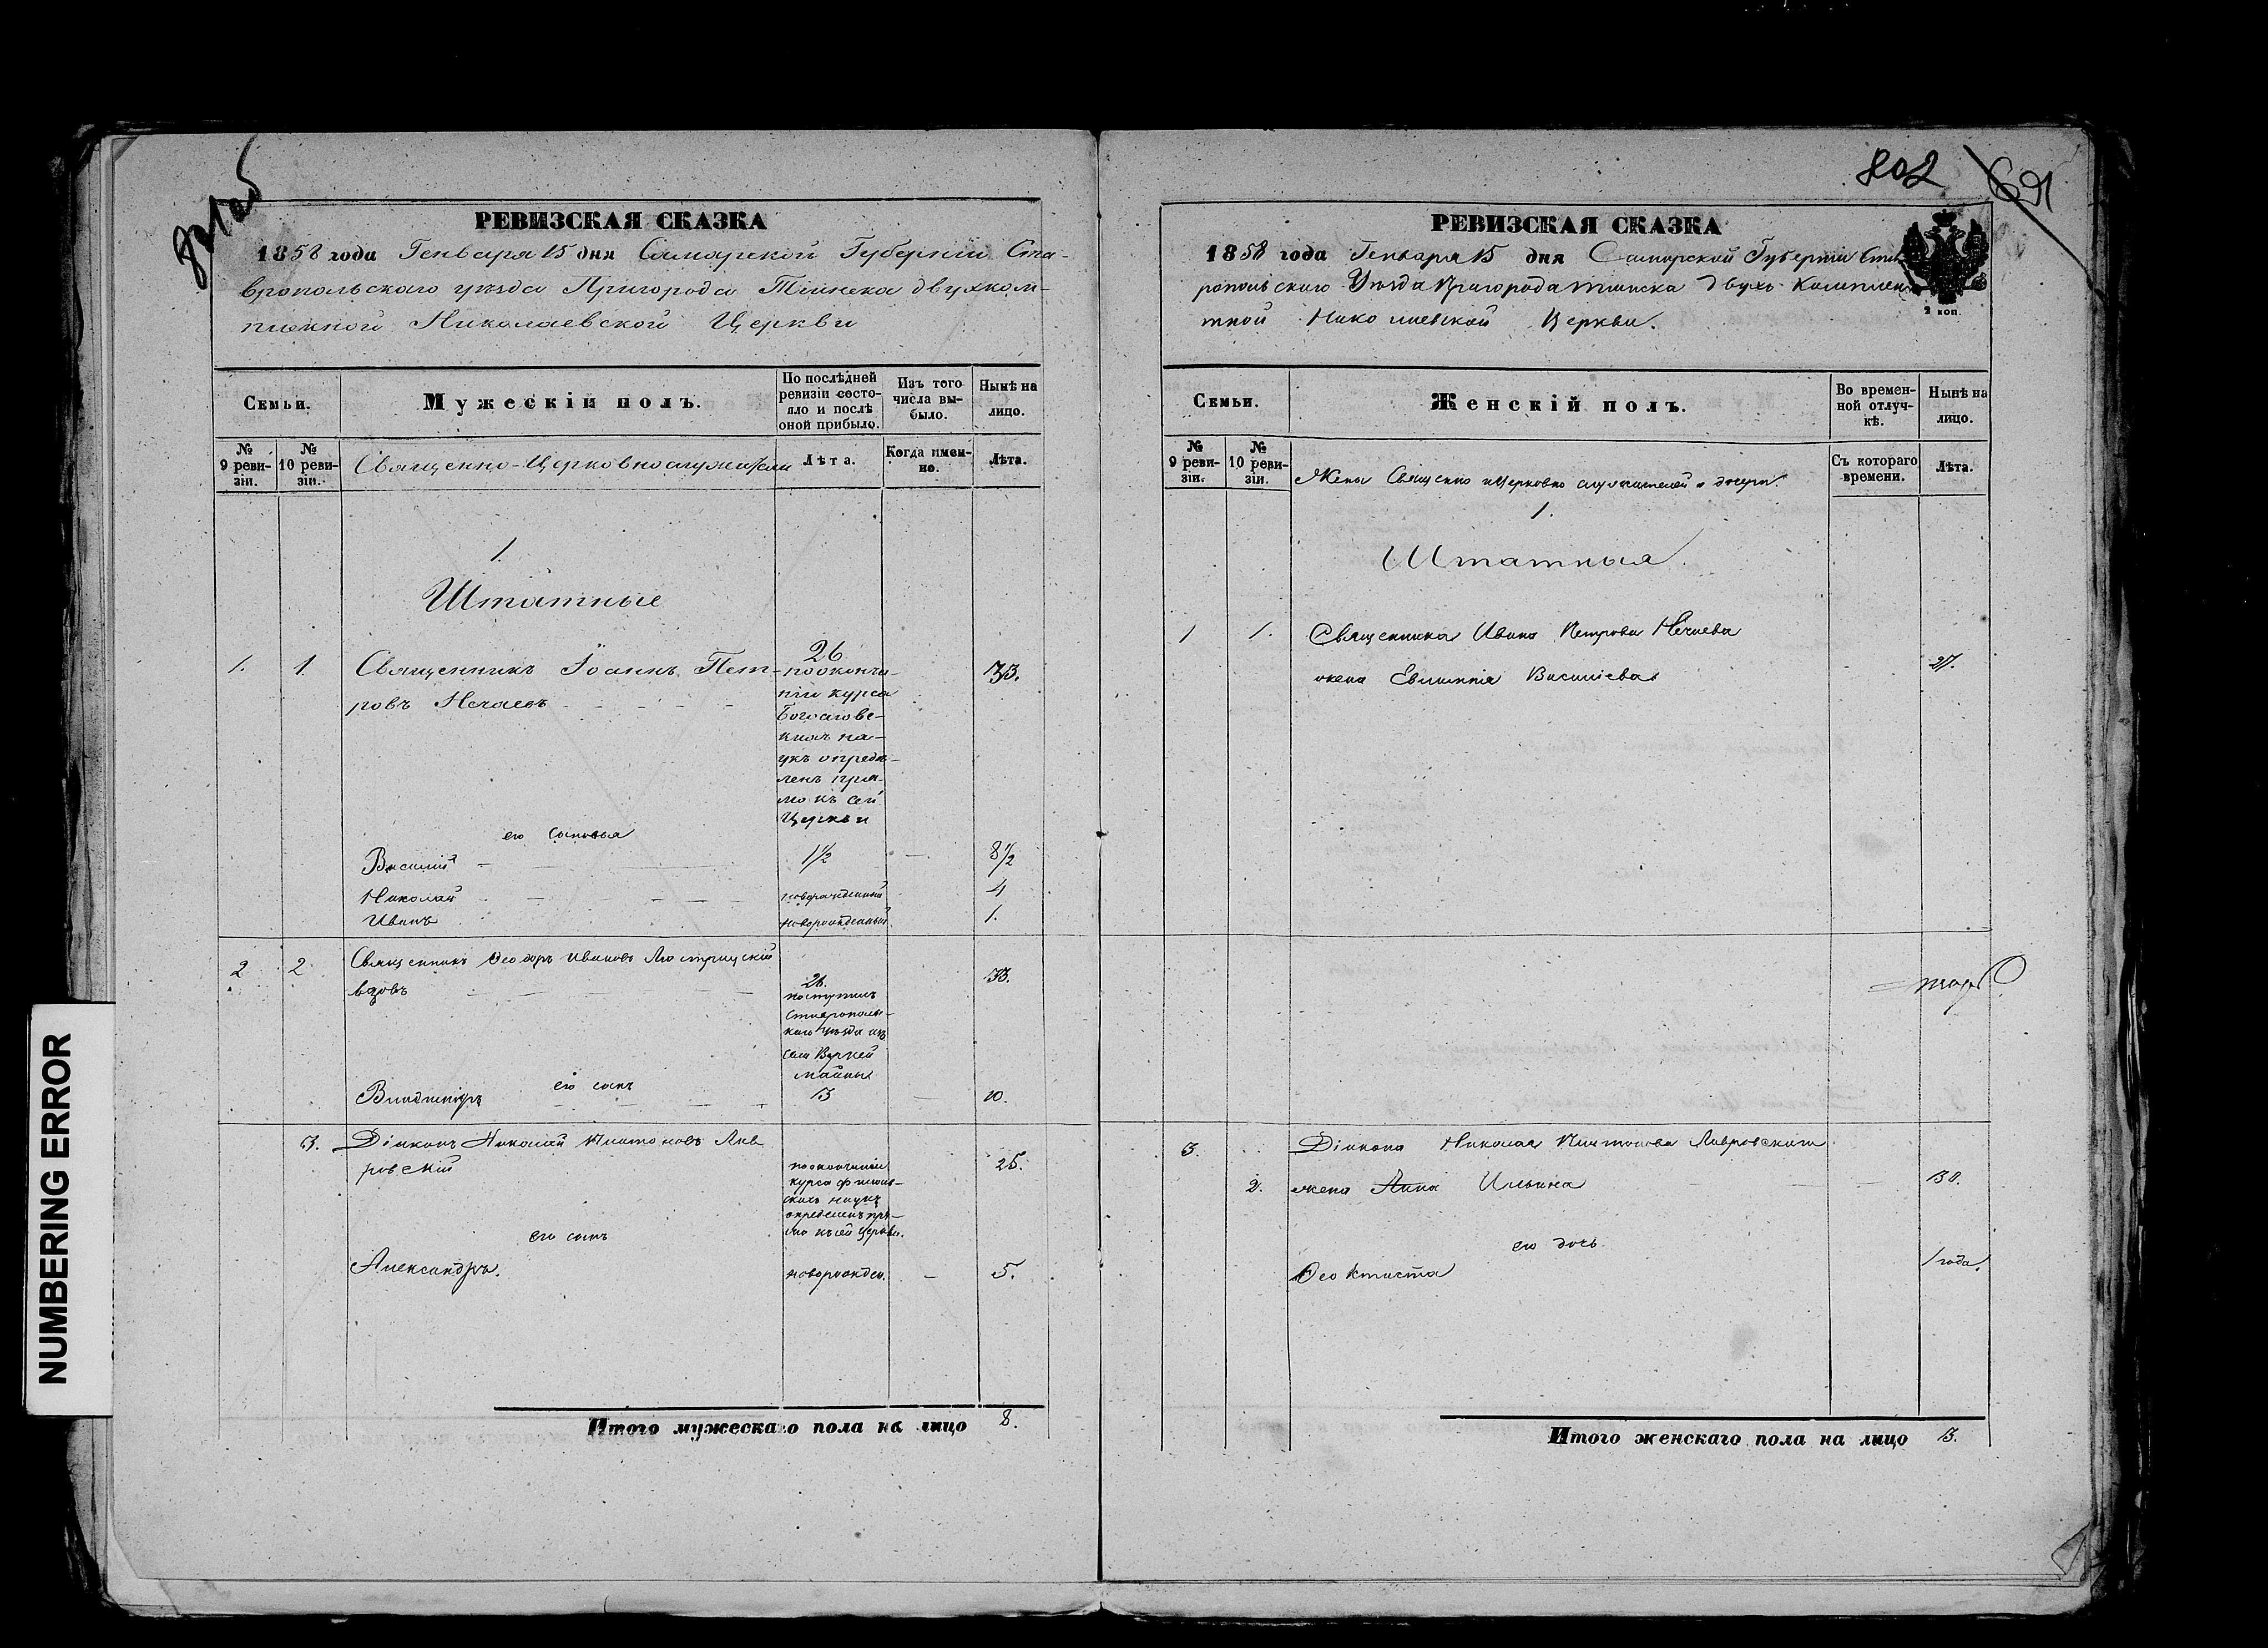 РЕВИЗСКАЯ СКАЗКА
1858 года Генваря 15 дня Самарской Губернiи Ста-
вропольскаго уѣзда Пригорода Тiинска двухком-
плектной Николаевской Церкви
Семьи.
Мужескiй полъ.
По послѣдней ревизiи состо-
яло и послѣ оной прибыло.
Изъ того числа вы-
было.
Нынѣ на лицо.
№ 9 реви-
зiи.
№ 10 реви-
зiи.
Священно-Церковнослужители
Лѣта.
Когда имен-
но.
Лѣта.
1.
Штатные
1. 1. Священникъ Iоаннъ Пет- 26 33.
ровъ Нечаевъ
по оконча-
нiи курса
Богословс-
кихъ на-
укъ опредѣ-
ленъ пря-
мо къ сей
Церкви
его сыновья
Василiй 1½ — 8½
Николай новорожденный 4
Иванъ новорожденный 1.
2 2 Священникъ Ѳеодоръ Ивановъ
вдовъ 26. 33.
поступилъ
Ставрополь-
скаго уѣзда изъ
села Верхней
Майны
его сынъ
Владимiръ 3 — 10.
3. Дiаконъ Николай Платоновъ Лав
ровскiй 25.
по окончанiи
курса
скихъ наукъ
опредѣленъ пря-
мо къ сей Церкви.
его сынъ
Александръ. новорожден. — 5.
Итого мужескаго пола на лицо 8.
802
691
РЕВИЗСКАЯ СКАЗКА
1858 года Генваря 15 дня Самарской Губернiи Став
ропольскаго Уѣзда Пригорода Тiинска двухъ Комплек
тной Николаевской Церкви.
2 коп.
Семьи.
Женскiй полъ.
Во времен-
ной отлуч-
кѣ.
Нынѣ на лицо.
№ 9 реви-
зiи.
№ 10 реви-
зiи.
Жены Священно и Церковно служителей и дочери.
Съ котораго времени.
Лѣта.
1.
Штатныя.
1 1. Священника Ивана Петрова Нечаева
жена Евлампiя Василiева 27.
3. Дiакона Николая Платонова Лавровскаго
2. жена Анна Ильина 30.
его дочь
Ѳеоктиста 1 года.
Итого женскаго пола на лицо 3.
NUMBERING ERROR